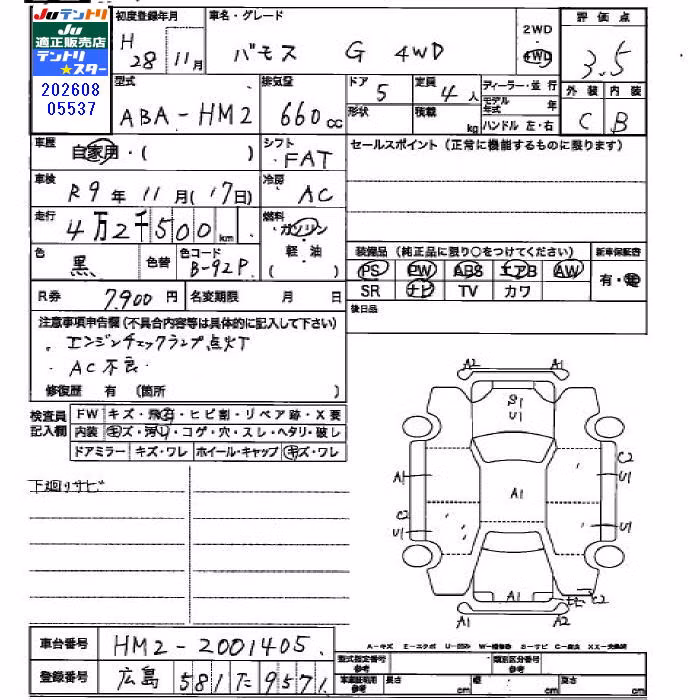 Juテントリ
Ju
適正販売店
テントリ
★スター
202608
05537
初度登録年月
H 28 11月
車名・グレード
バモス G 4WD
2WD
4WD
評価点
3.5
外装 内装
C B
型式
ABA-HM2
排気量
660cc
ドア
5
定員
4人
形状
積載
kg
ディーラー・並行
モデル年式 年
ハンドル 左・右
車歴
自家用・( )
シフト
FAT
セールスポイント(正常に機能するものに限ります)
車検
R9年11月(17日)
冷房
AC
走行
4万2千500km
燃料
ガソリン
軽・油
( )
色
黒
色替
色コード
B-92P
装備品(純正品に限り○をつけてください)
新車保証書
PS PW ABS エアB AW
SR ナビ TV カワ
有・無
R券 7,900円
名変期限 月 日
後日品
注意事項申告欄(不具合内容等は具体的に記入して下さい)
・エンジンチェックランプ点灯
・AC不良
修復歴 有(箇所 )
検査員記入欄
FW キズ・飛石・ヒビ割・リペア跡・X要
内装 キズ・汚れ・コゲ・穴・スレ・ヘタリ・破し
ドアミラー キズ・ワレ ホイール・キャップ キズ・ワレ
下廻りサビ
A2 A1
S1
U1
A1
C2
U1
A1
C2
U1
U1
A1
C2
A1 A2
車台番号
HM2-2001405
登録番号
広島 581 た 9571
A-キズ E-エクボ U-凹み W-補修跡 S-サビ C-腐食 XX-交換済
型式指定番号
参考
類別区分番号
参考
車庫証明用
参考
長さ cm 幅 cm 高さ cm